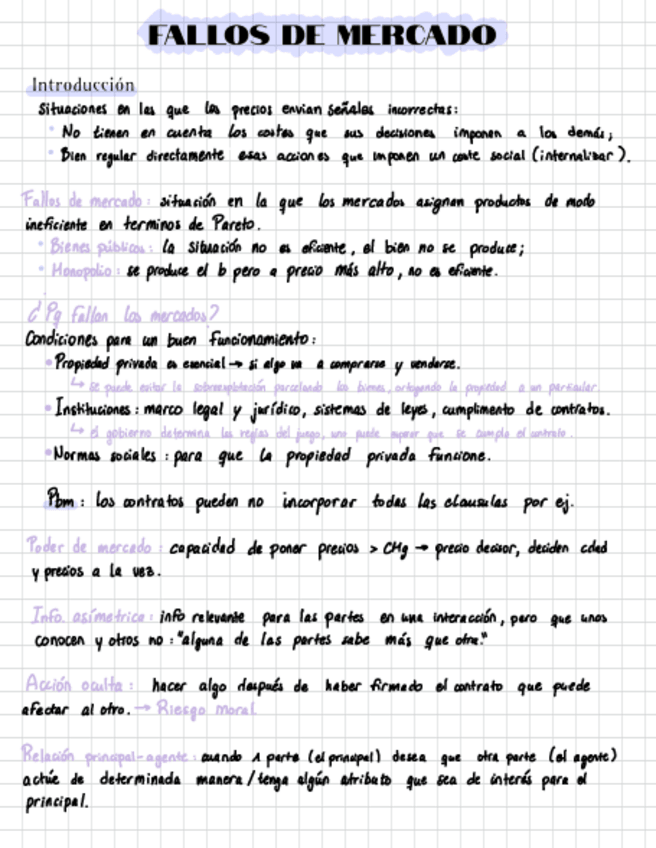 FALLOS DE MERCADO
Introducción
Situaciones en las que los precios envian señales incorrectas:
• No tienen en cuenta los costes que sus decisiones imponen a los demás;
• Bien regular directamente esas acciones que imponen un coste social (internalizar).
Fallos de mercado: situación en la que los mercados asignan productos de modo
ineficiente en terminos de Pareto.
• Bienes públicos: la situación no es eficiente, el bien no se produce;
• Monopolio: se produce el b pero a precio más alto, no es eficiente.
¿Pq fallan los mercados?
Condiciones para un buen funcionamiento:
• Propiedad privada es esencial → si algo va a comprarse y venderse.
↳ se puede evitar la sobreexplotación parcelando los bienes, otorgando la propiedad a un particular.
• Instituciones: marco legal y jurídico, sistemas de leyes, cumplimento de contratos.
↳ el gobierno determina las reglas del juego, uno puede esperar que se cumpla el contrato.
• Normas sociales: para que la propiedad privada funcione.
Pbm: los contratos pueden no incorporar todas las clausulas por ej.
Poder de mercado: capacidad de poner precios > CMg → precio decisor, deciden cdad
y precios a la vez.
Info. asímetrica: info relevante para las partes en una interacción, pero que unos
conocen y otros no: "alguna de las partes sabe más que otra."
Acción oculta: hacer algo después de haber firmado el contrato que puede
afectar al otro. → Riesgo moral
Relación principal-agente: cuando 1 parte (el principal) desea que otra parte (el agente)
actúe de determinada manera/tenga algún atributo que sea de interés para el
principal.